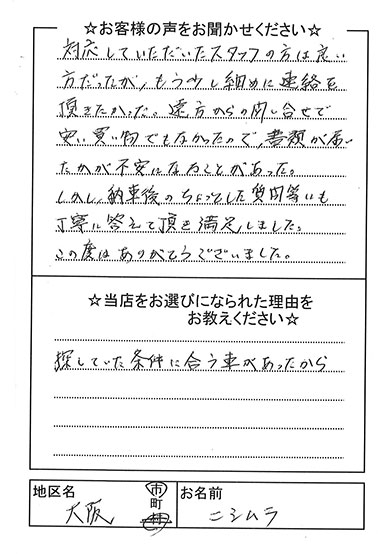 ☆お客様の声をお聞かせください☆
対応していただいたスタッフの方は良い
方だったが、もう少し細めに連絡を
頂きたかった。遠方からの問い合せで
安い買い物でもなかったので、書類が届い
たかが不安になることがあった。
しかし、納車後のちょっとした質問等いも
丁寧に答えて頂き満足しました。
この度はありがとうございました。
☆当店をお選びになられた理由を
お教えください☆
探していた条件に合う車があったから
地区名
大阪
市
町
村
お名前
ニシムラ